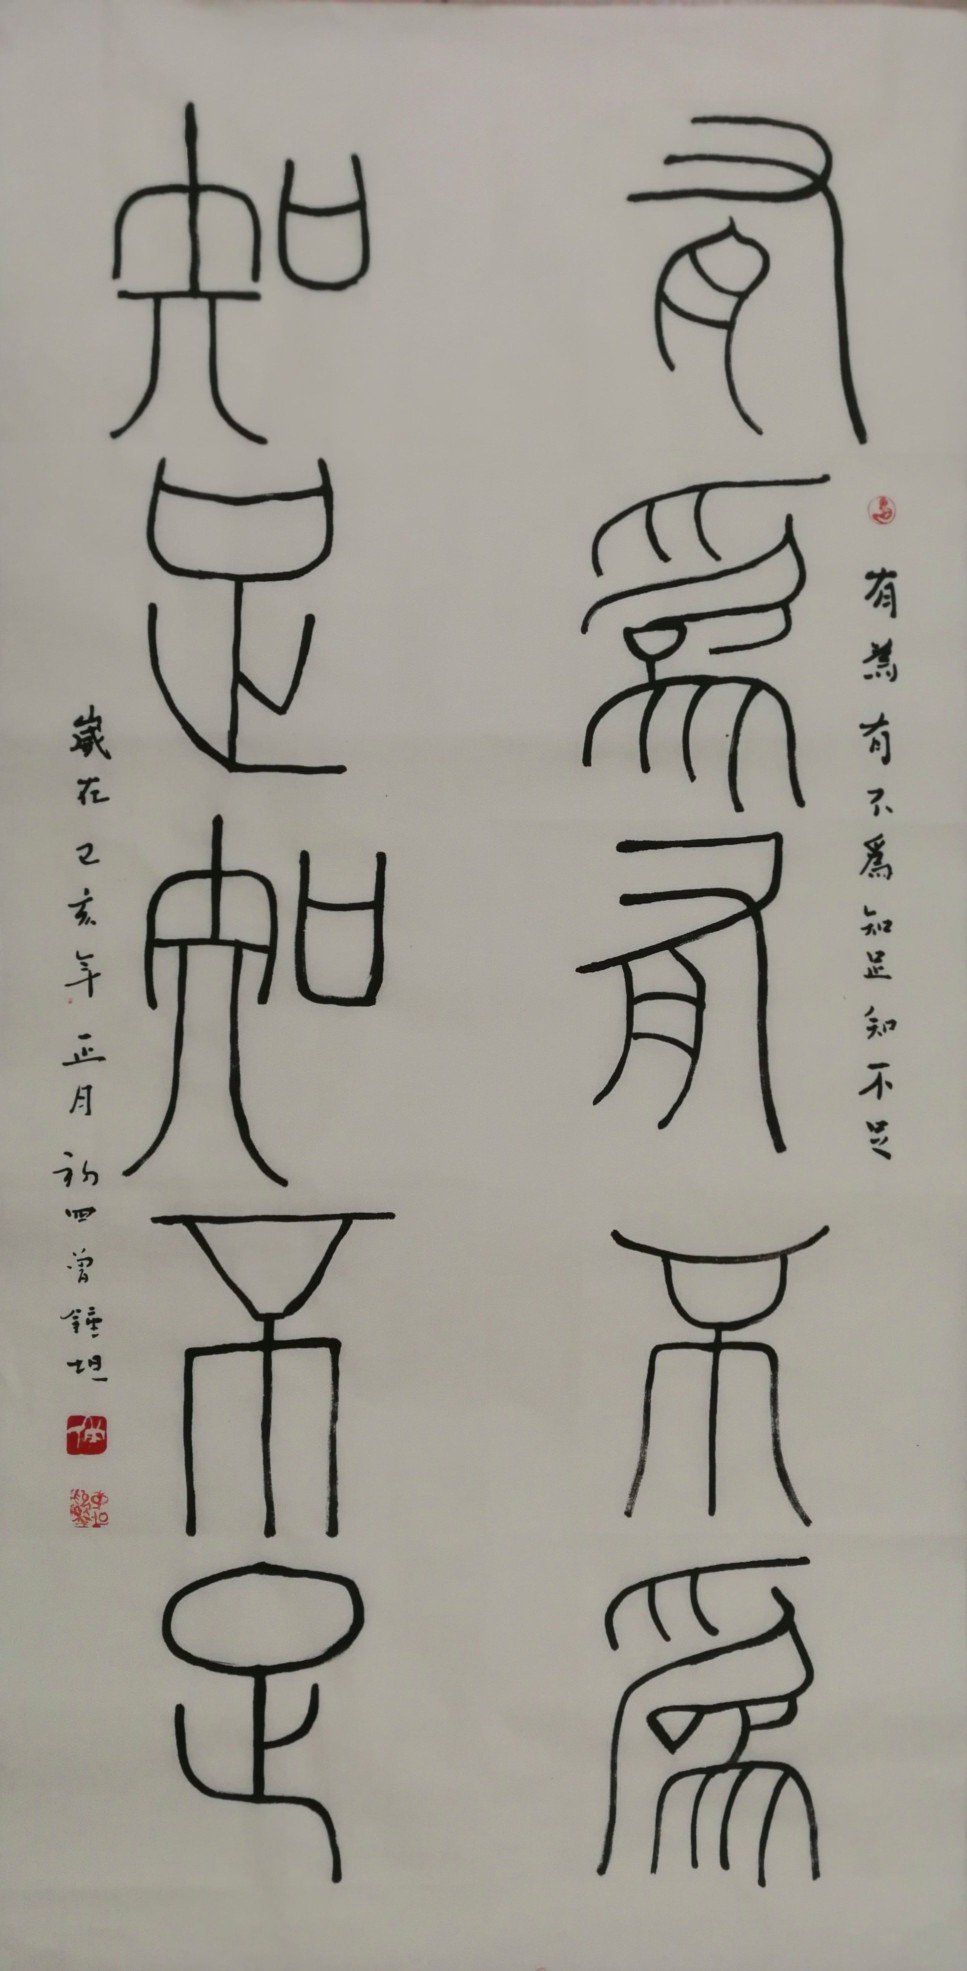 有為有不為知足知不足
有爲有不爲
知足知不足
歲在己亥年正月初四曾鐘坦